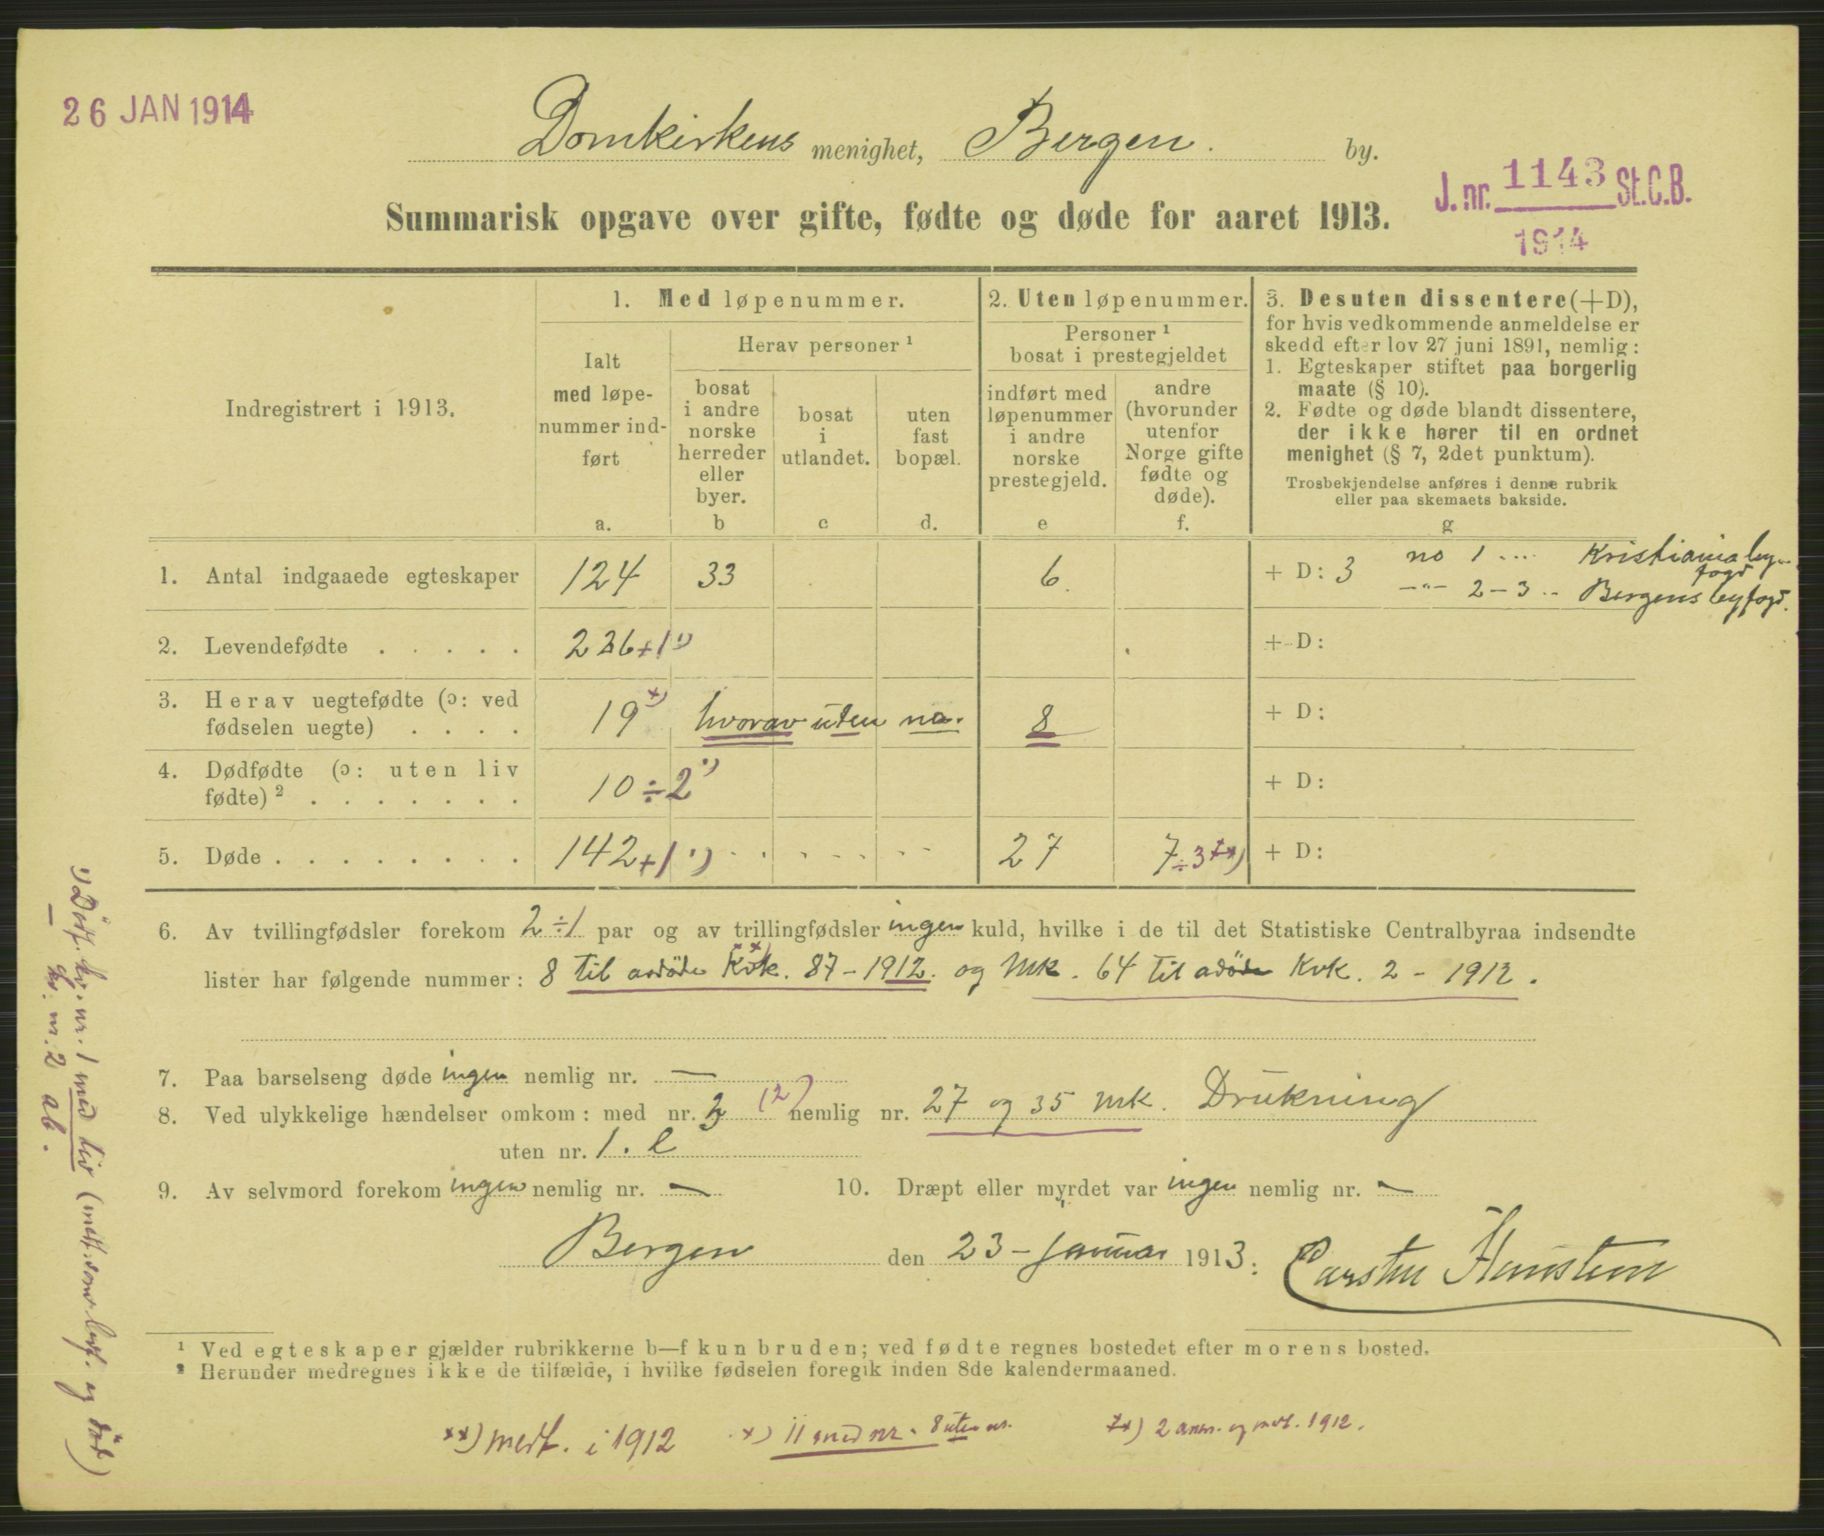 26 JAN 1914
Domkirkens menighet, Bergen. by.
J. nr. 1143 St.C.B.
1914
Summarisk opgave over gifte, fødte og døde for aaret 1913.
Indregistrert i 1913.
1. Med løpenummer.
Ialt
med løpe-
nummer ind-
ført
a.
Herav personer ¹
bosat
i andre
norske
herreder
eller
byer.
b
bosat
i
utlandet.
c
uten
fast
bopæl.
d.
2. Uten løpenummer.
Personer ¹
bosat i prestegjeldet
indført med
løpenummer
i andre
norske
prestegjeld.
e
andre
(hvorunder
utenfor
Norge gifte
fødte og
døde).
f.
3. Desuten dissentere (+D),
for hvis vedkommende anmeldelse er
skedd efter lov 27 juni 1891, nemlig:
1. Egteskaper stiftet paa borgerlig
maate (§ 10).
2. Fødte og døde blandt dissentere,
der ikke hører til en ordnet
menighet (§ 7, 2det punktum).
Trosbekjendelse anføres i denne rubrik
eller paa skemaets bakside.
g
1. Antal indgaaede egteskaper 124 33 6. + D: 3 no 1 .... Kristiania by-
fogd
-"- 2-3 .. Bergens byfogd.
2. Levendefødte . . . . . 226+1 ¹) + D:
3. Herav uegtefødte (ɔ: ved
fødselen uegte) . . . . 19 ×) hvorav uten no. 8 + D:
4. Dødfødte (ɔ: uten liv
fødte) ² . . . . . . . 10÷2 ¹) + D:
5. Døde . . . . . . . . . 142+1 ¹) 27 7÷3 ××) + D:
6. Av tvillingfødsler forekom 2÷1 par og av trillingfødsler ingen kuld, hvilke i de til det Statistiske Centralbyraa indsendte
lister har følgende nummer: 8 til Kvk. 87-1912. og Mk. 64 til Kvk. 2 - 1912.
7. Paa barselseng døde ingen nemlig nr. —
8. Ved ulykkelige hændelser omkom: med nr. (2) nemlig nr. 27 og 35 Mk. Drukning
uten nr. 1.
9. Av selvmord forekom ingen nemlig nr. —
10. Dræpt eller myrdet var ingen nemlig nr. —
Bergen den 23-januar 1913: Carsten Hansteen
¹ Ved egteskaper gjælder rubrikkerne b—f kun bruden; ved fødte regnes bostedet efter morens bosted.
² Herunder medregnes ikke de tilfælde, i hvilke fødselen foregik inden 8de kalendermaaned.
××) medt. i 1912
×) 11 med nr. 8 uten nr.
××) 2 anm. og medt. 1912.
¹) Dödf. kv. nr. 1 med liv (medt. som levf. og död)
— kv. nr. 2 ab.